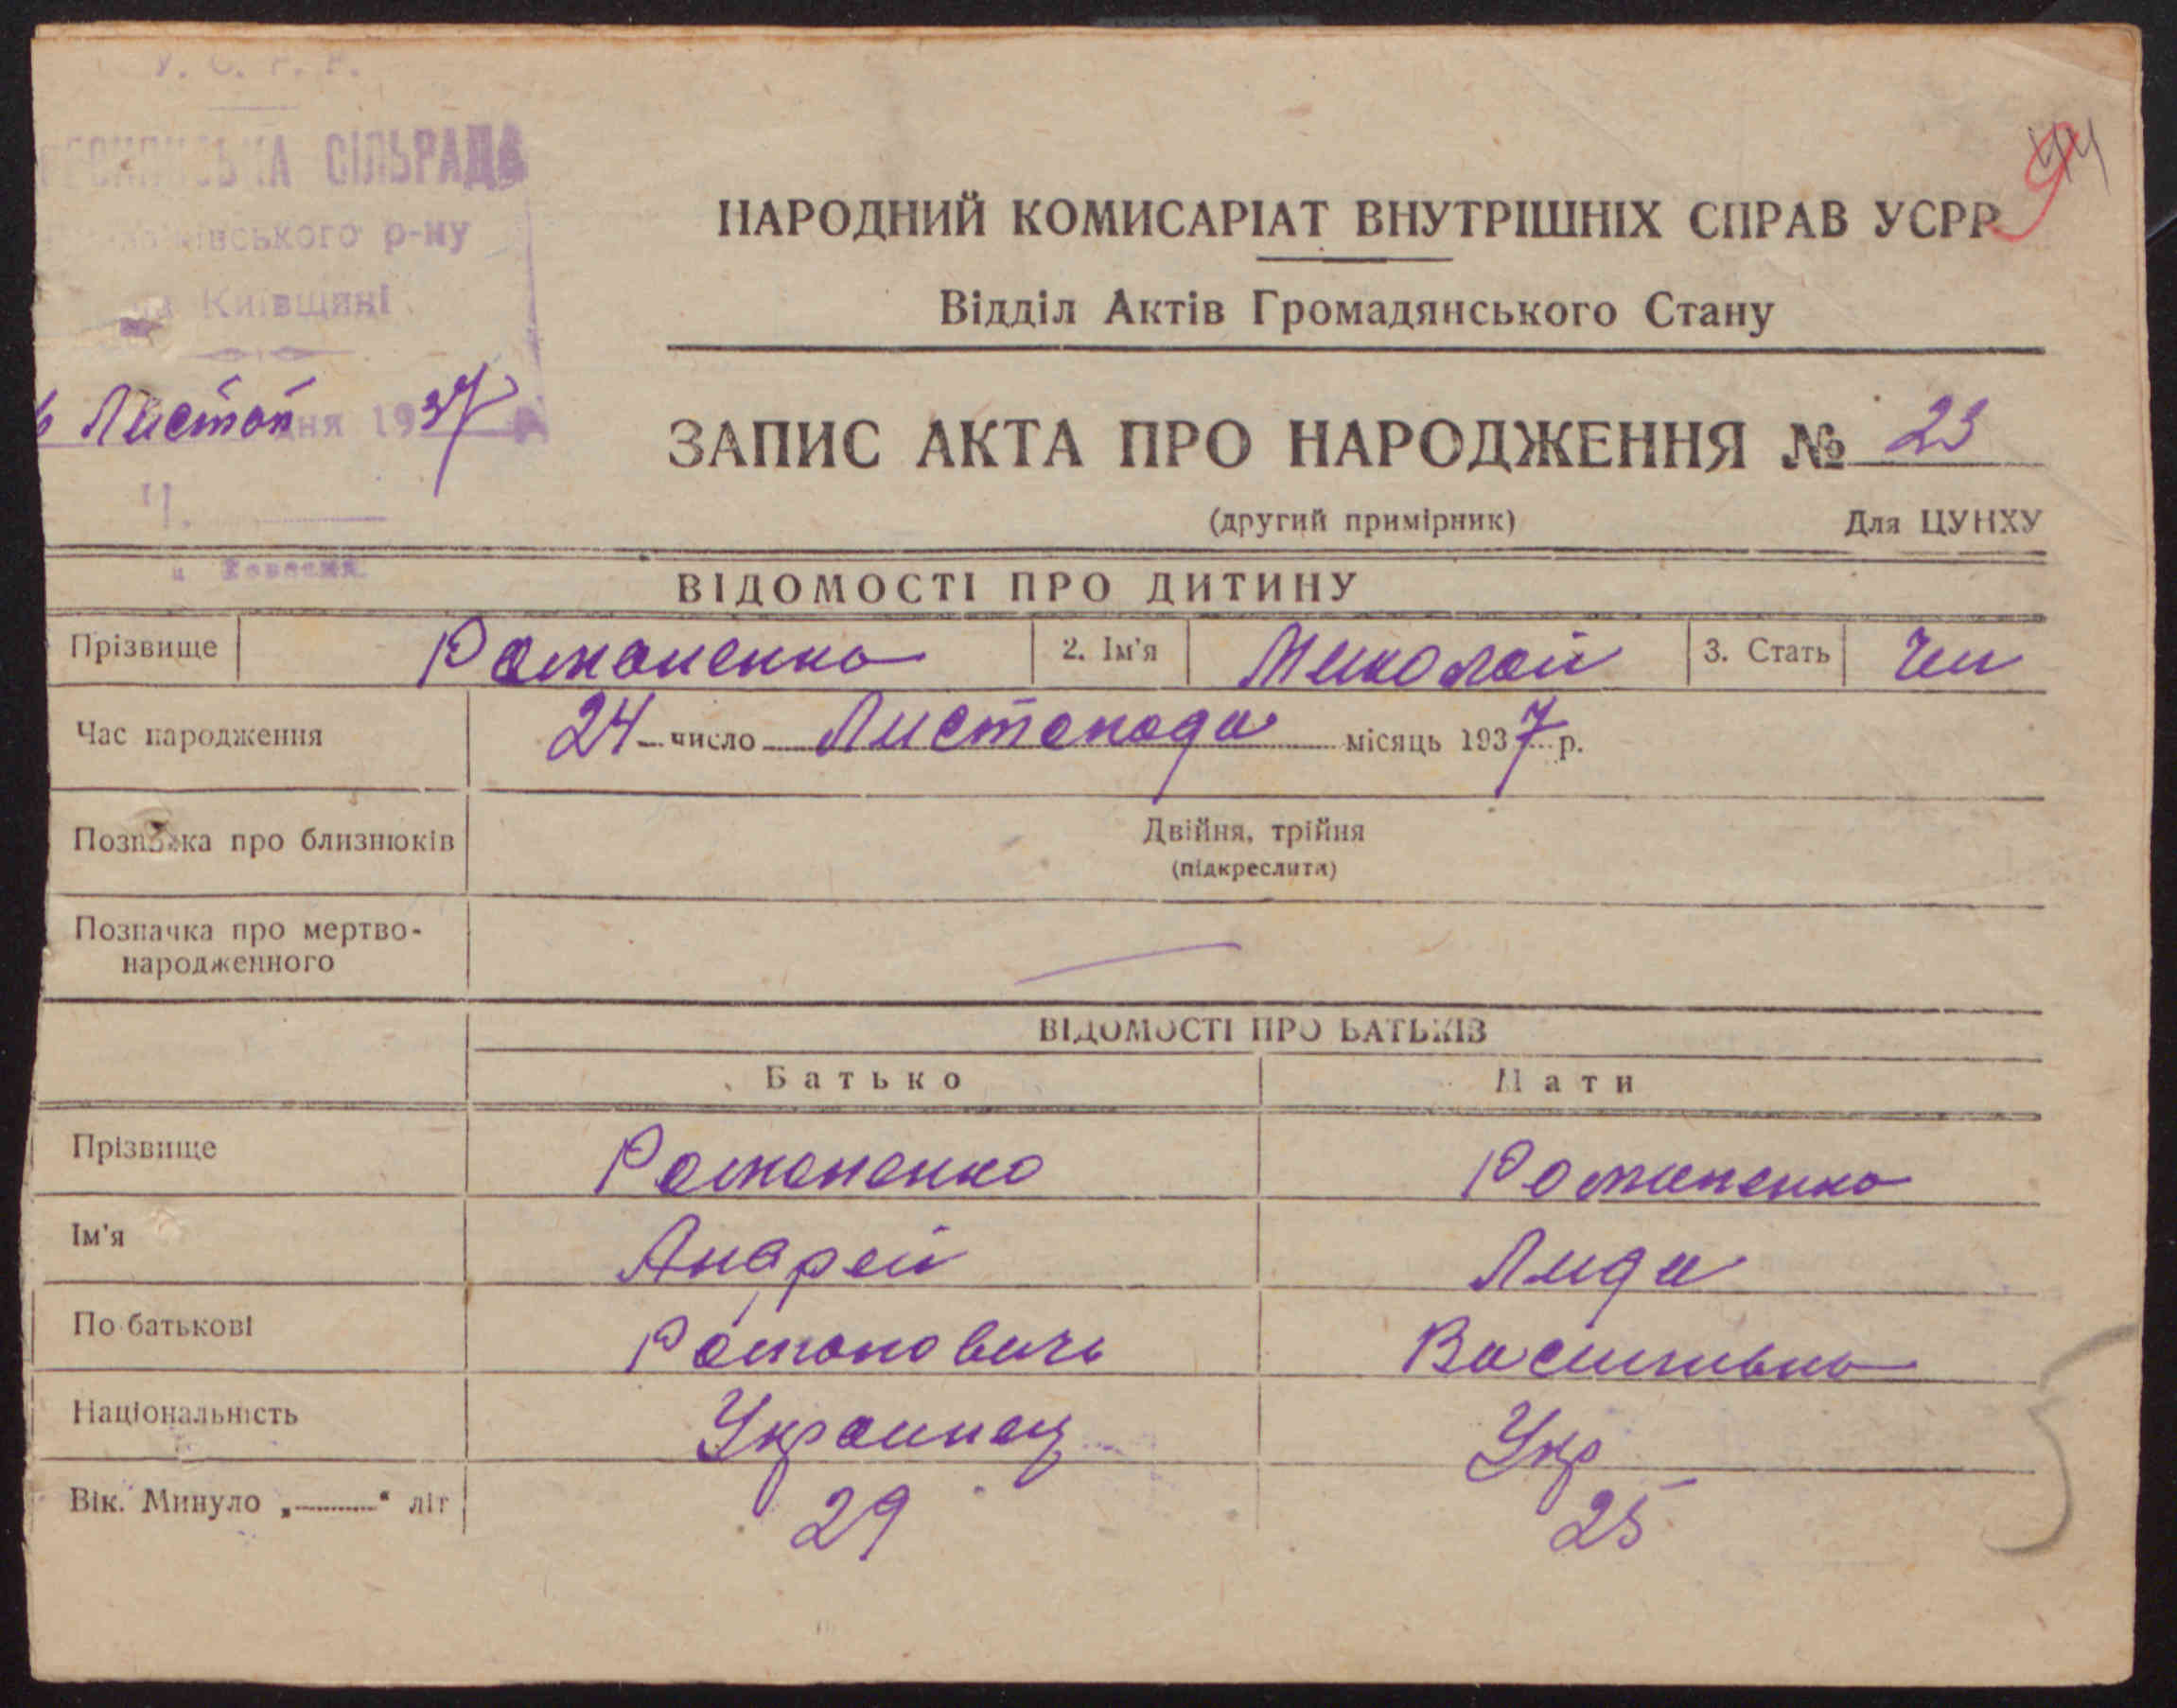 У. С. Р. Р.
СІЛЬРАДА
р-ну
на Київщині
Листоп дня 1937
Ч.
НАРОДНИЙ КОМИСАРІАТ ВНУТРІШНІХ СПРАВ УСРР
Відділ Актів Громадянського Стану
ЗАПИС АКТА ПРО НАРОДЖЕННЯ № 23
(другий примірник) Для ЦУНХУ
ВІДОМОСТІ ПРО ДИТИНУ
Прізвище Романенко 2. Ім'я Миколай 3. Стать Чл
Час народження 24 число Листопада місяць 1937 р.
Позначка про близнюків Двійня, трійня
(підкреслити)
Позначка про мертво-
народженного
ВІДОМОСТІ ПРО БАТЬКІВ
Батько Мати
Прізвище Романенко Романенко
Ім'я Андрей Лида
По батькові Романовичь Василивна
Національність Украинец Укр
Вік. Минуло „ “ літ 29 25